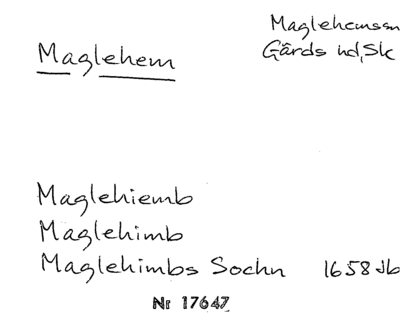 Maglehem
Maglehemssn
Gärds hd, Sk
Maglehiemb
Maglehimb
Maglehimbs Sochn 1658 Jb
Nr 17647